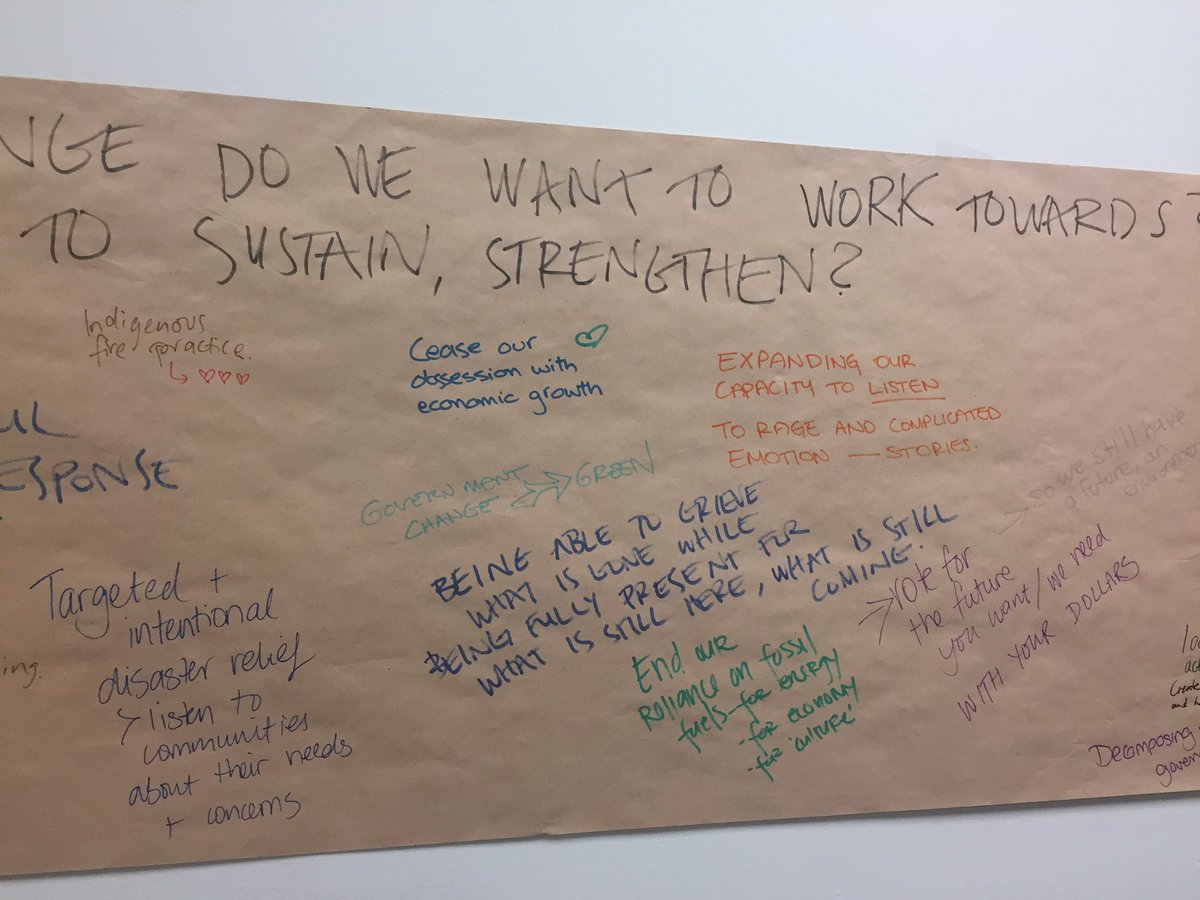 NGE DO WE WANT TO WORK TOWARDS?
TO SUSTAIN, STRENGTHEN?
Indigenous
fire practice.
↳ ♡♡♡
Cease our
obsession with
economic growth
EXPANDING OUR
CAPACITY TO LISTEN
TO RAGE AND COMPLICATED
EMOTION — STORIES.
UL
ESPONSE
GOVERNMENT
CHANGE
GREEN
So we still have
a future, an
environment
BEING ABLE TO GRIEVE
WHAT IS GONE WHILE
BEING FULLY PRESENT FOR
WHAT IS STILL HERE, WHAT IS STILL
COMING.
Targeted +
intentional
disaster relief
> listen to
communities
about their needs
+ concerns
ing.
End our
reliance on fossil
fuels - for energy
- for economy
- for 'culture'
> vote for
the future
you want/we need
WITH YOUR DOLLARS
Create
Decomposing
govern